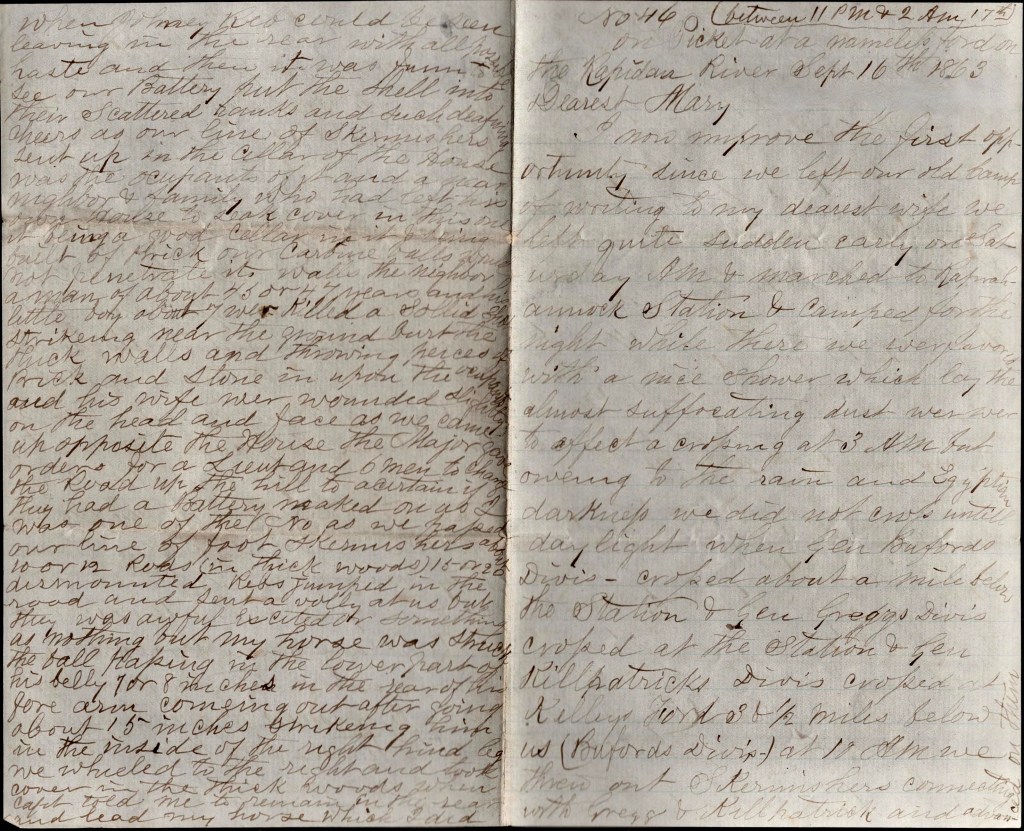 No 46 (between 11 PM & 2 Am 17th)
on Picket at a nameless ford on
the Rapidan River Sept 16th 1863
Dearest Mary
I now improve the first opp-
ortunity since we left our old Camp
of writing to my dearest wife we
left quite sudden early on Sat
urday AM & marched to Raprah-
annock Station & Camped for the
night while there we wer favord
with a nice shower which lay the
almost suffocating dust we wer
to affect a crossing at 3 AM but
oweing to the rain and Egyptian
darkness we did not cross until
daylight when Gen Bufords
Divis- crossed about a mile below
the Station & Gen Greggs Divis
crossed at the Station & Gen
Killpatricks Divis crossed at
Kelleys Ford 3 & 1/2 miles below
us (Bufords Divis-) at 10 AM we
threw out Skermishers connecting
with Gregg & Killpatrick and advan
when Whney Reb could be seen
leaving in the rear with all
haste and then it was funn to
see our Battery put the shell into
their Scattered ranks and such deafning
cheers as our line of Skermishers
sent up in the Cellar of the House
was the ocupants of it and a near
neighbor & family who had left his
own House to seak cover in this one
it being a good Cellar in it & being
built of Brick our Carbine balls
not penetrate its walls the neighbor
a man of about 45 or 47 years and
little boy about 7 wer Killed a Sollid Shot
strikeing near the ground burst the
thick walls and throwing peices of
Brick and Stone in upon the ocupants
and his wife wer wounded slightly
on the head and face as we came
up opposite the House the Major gave
orders for a Lieut and 6 men to charge
the Road up the hill to acertain if
they had a Battery masked on us I
was one of the No as we passed
our line of foot Skermishers about
10 or 12 Rods (in thick woods) 15 or 20
dismounted Rebs jumped in the
road and sent a volly at us but
they was awful Excited or something
as nothing but my horse was struck
the ball passing in the lower part of
his belly 7 or 8 inches in the rear of his
fore arm comeing out after going
about 15 inches strikeing him
in the inside of the right hind leg
we wheeled to the right and took
cover in the thick woods when
Capt told me to remain in the rear
and lead my horse which I did